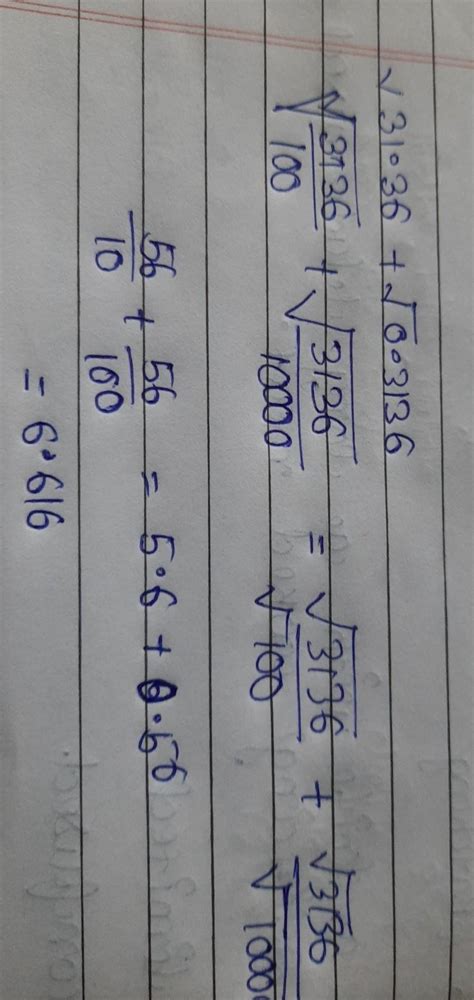 √31.36 + √0.3136
√3136/100 + √3136/10000 = √3136/√100 + √3136/√1000
56/10 + 56/100 = 5.6 + 0.56
= 6.616